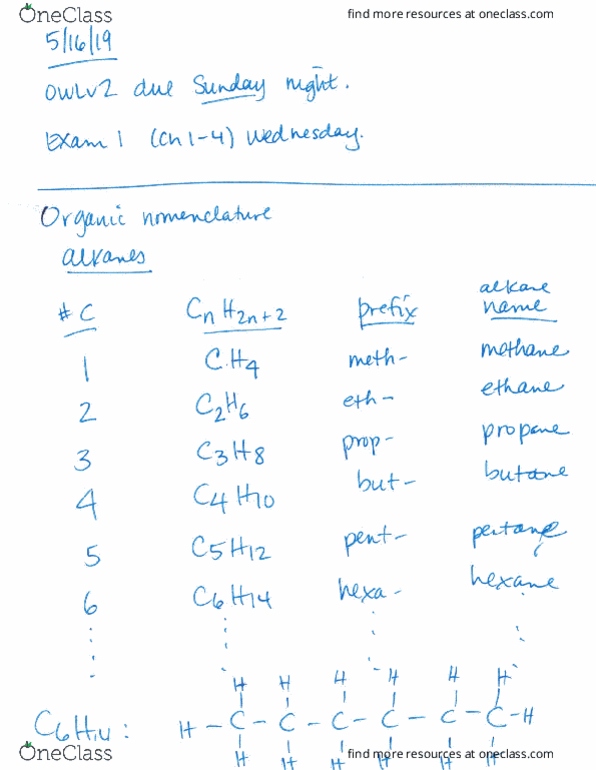 OneClass find more resources at oneclass.com
5/16/19
OWLv2 due Sunday night.
Exam 1 (Ch 1-4) Wednesday.
Organic nomenclature
alkanes
# C CnH2n+2 prefix alkane name
1 CH4 meth- methane
2 C2H6 eth- ethane
3 C3H8 prop- propane
4 C4H10 but- butane
5 C5H12 pent- pentane
6 C6H14 hexa- hexane
H H H H H H
C6H14: H-C-C-C-C-C-C-H
H H H H H H
OneClass find more resources at oneclass.com